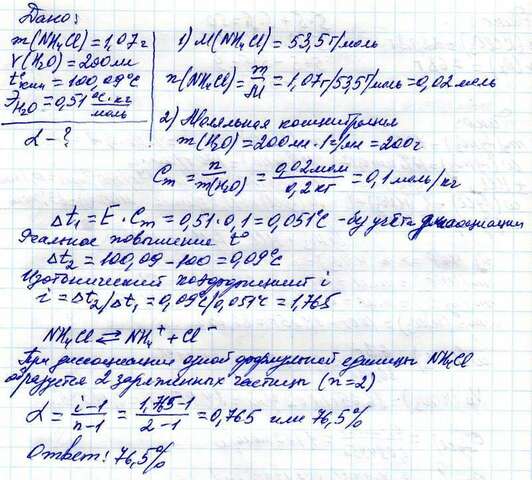 Дано:
m(NH₄Cl) = 1,07 г
V(H₂O) = 200 мл
t°кип = 100,09°C
Э H₂O = 0,51 °C·кг/моль
α - ?
1) M(NH₄Cl) = 53,5 г/моль
n(NH₄Cl) = m/M = 1,07 г/53,5 г/моль = 0,02 моль
2) Моляльная концентрация
m(H₂O) = 200 мл · 1 г/мл = 200 г
Cm = n/m(H₂O) = 0,02 моль/0,2 кг = 0,1 моль/кг
Δt₁ = E · Cm = 0,51 · 0,1 = 0,051°C - без учёта диссоциации
Реальное повышение t°
Δt₂ = 100,09 - 100 = 0,09°C
Изотонический коэффициент i
i = Δt₂/Δt₁ = 0,09°C/0,051°C = 1,765
NH₄Cl ⇄ NH₄⁺ + Cl⁻
При диссоциации одной формульной единицы NH₄Cl
образуется 2 заряженных частицы (n=2)
α = i-1/n-1 = 1,765-1/2-1 = 0,765 или 76,5%
Ответ: 76,5%